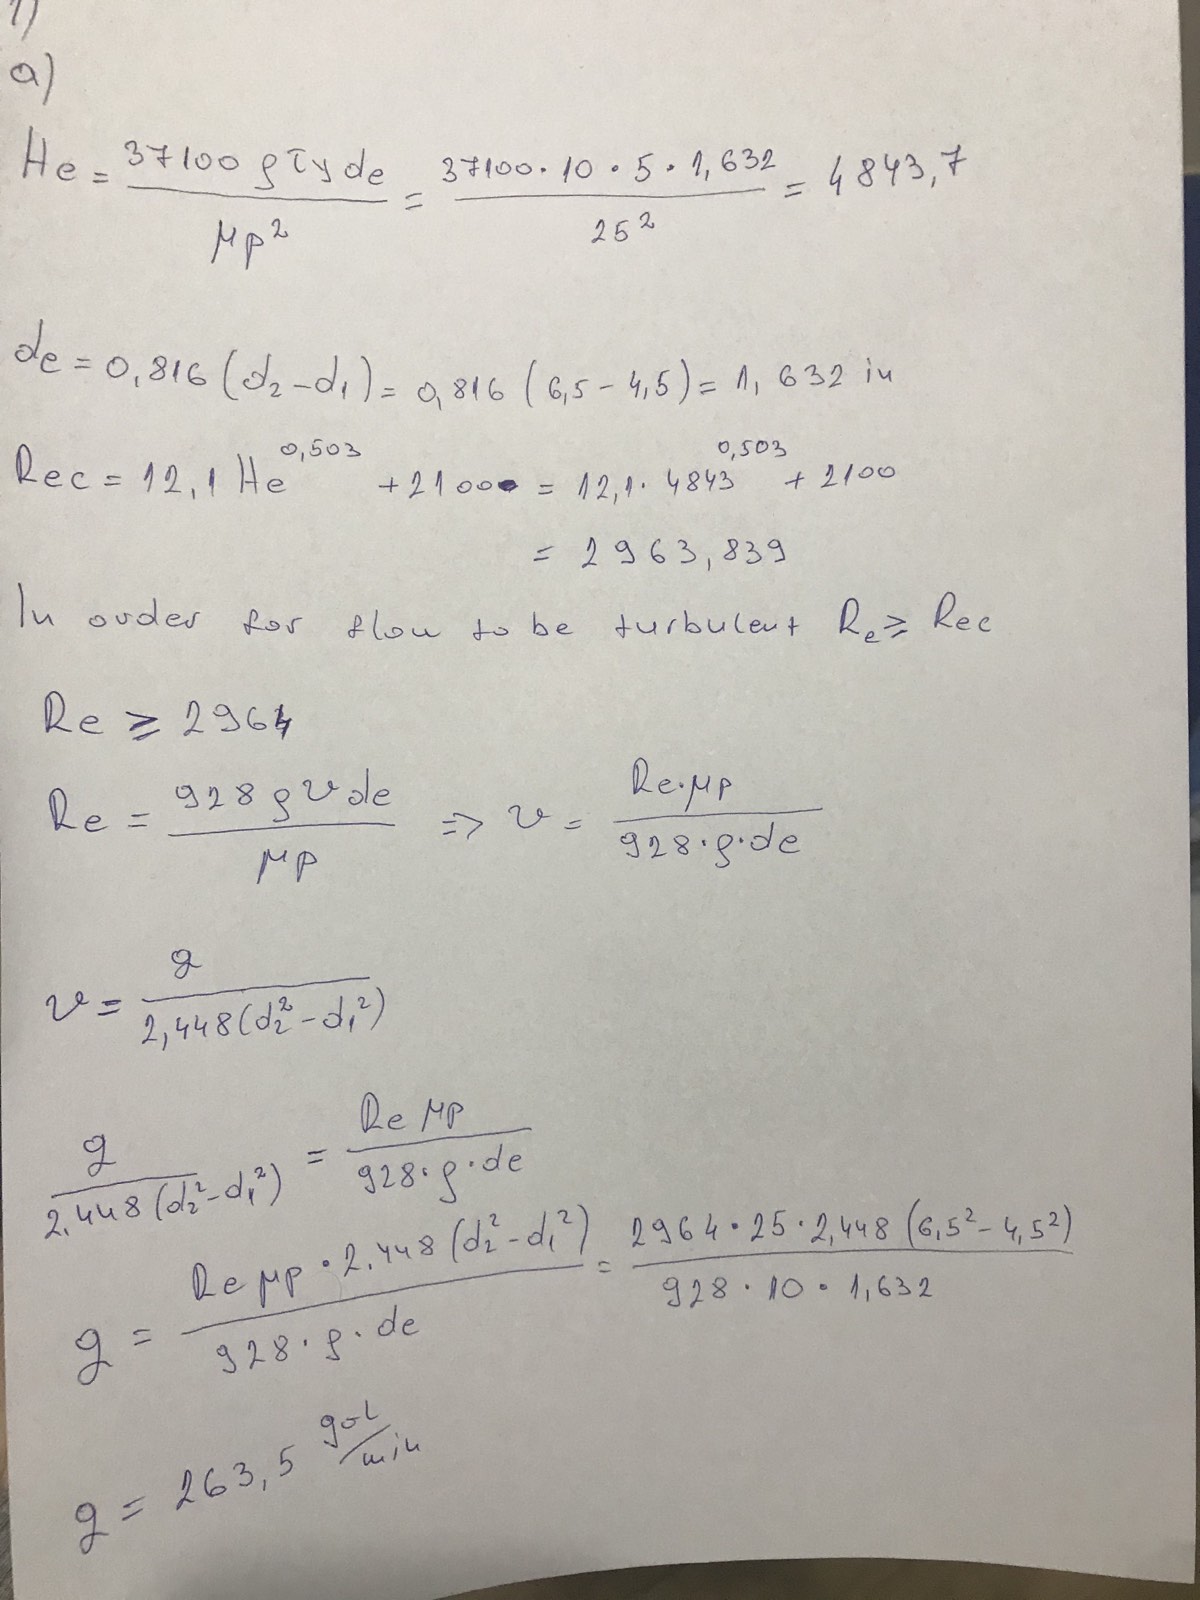 1)
a)
He = 37100 ρ τy de / μp² = 37100 · 10 · 5 · 1,632 / 25² = 4843,7
de = 0,816 (d₂ - d₁) = 0,816 (6,5 - 4,5) = 1,632 in
Rec = 12,1 He^0,503 + 2100 = 12,1 · 4843^0,503 + 2100
= 2963,839
In order for flow to be turbulent Re ≥ Rec
Re ≥ 2964
Re = 928 ρ v de / μp => v = Re · μp / 928 · ρ · de
v = q / 2,448 (d₂² - d₁²)
q / 2,448 (d₂² - d₁²) = Re μp / 928 · ρ · de
q = Re μp · 2,448 (d₂² - d₁²) / 928 · ρ · de = 2964 · 25 · 2,448 (6,5² - 4,5²) / 928 · 10 · 1,632
q = 263,5 gal/min